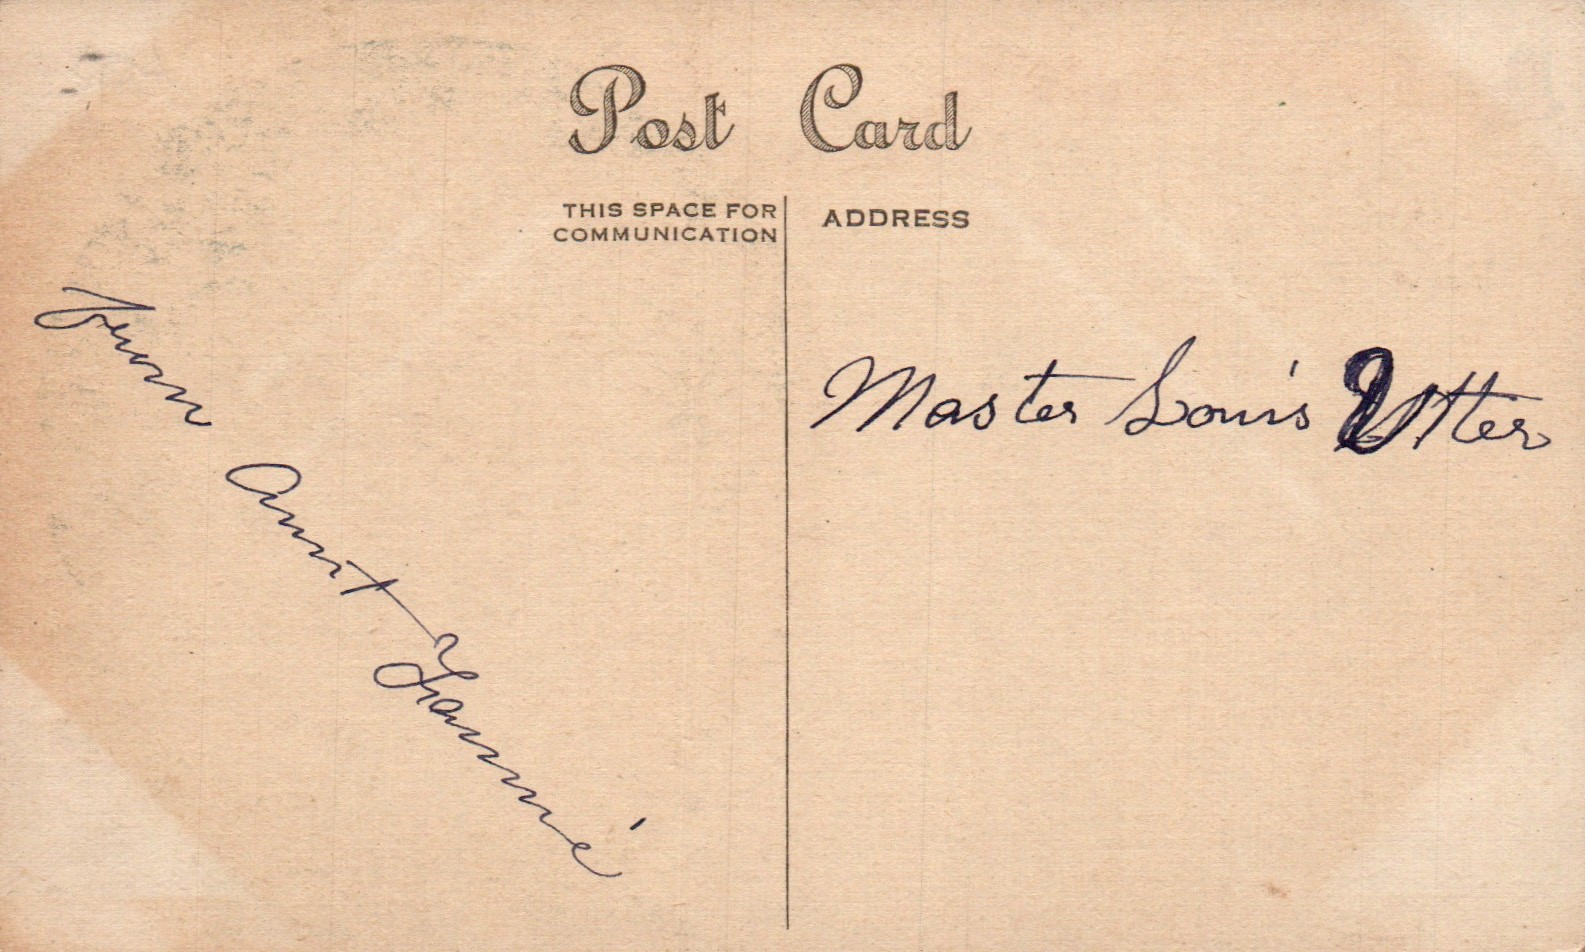 Post Card
THIS SPACE FOR
COMMUNICATION
ADDRESS
From
Aunt
Fannie
Master Louis Utter